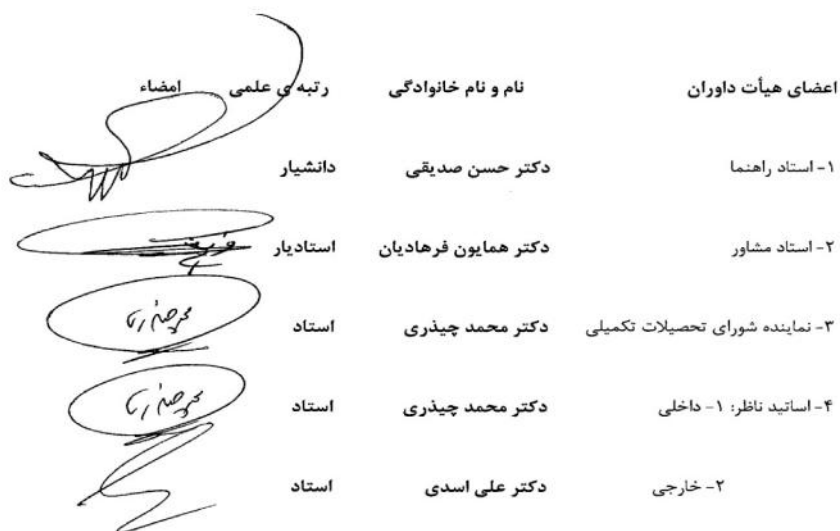 اعضای هیأت داوران نام و نام خانوادگی رتبه ی علمی امضاء
۱- استاد راهنما دکتر حسن صدیقی دانشیار
۲- استاد مشاور دکتر همایون فرهادیان استادیار
۳- نماینده شورای تحصیلات تکمیلی دکتر محمد چیذری استاد
۴- اساتید ناظر: ۱- داخلی دکتر محمد چیذری استاد
۲- خارجی دکتر علی اسدی استاد